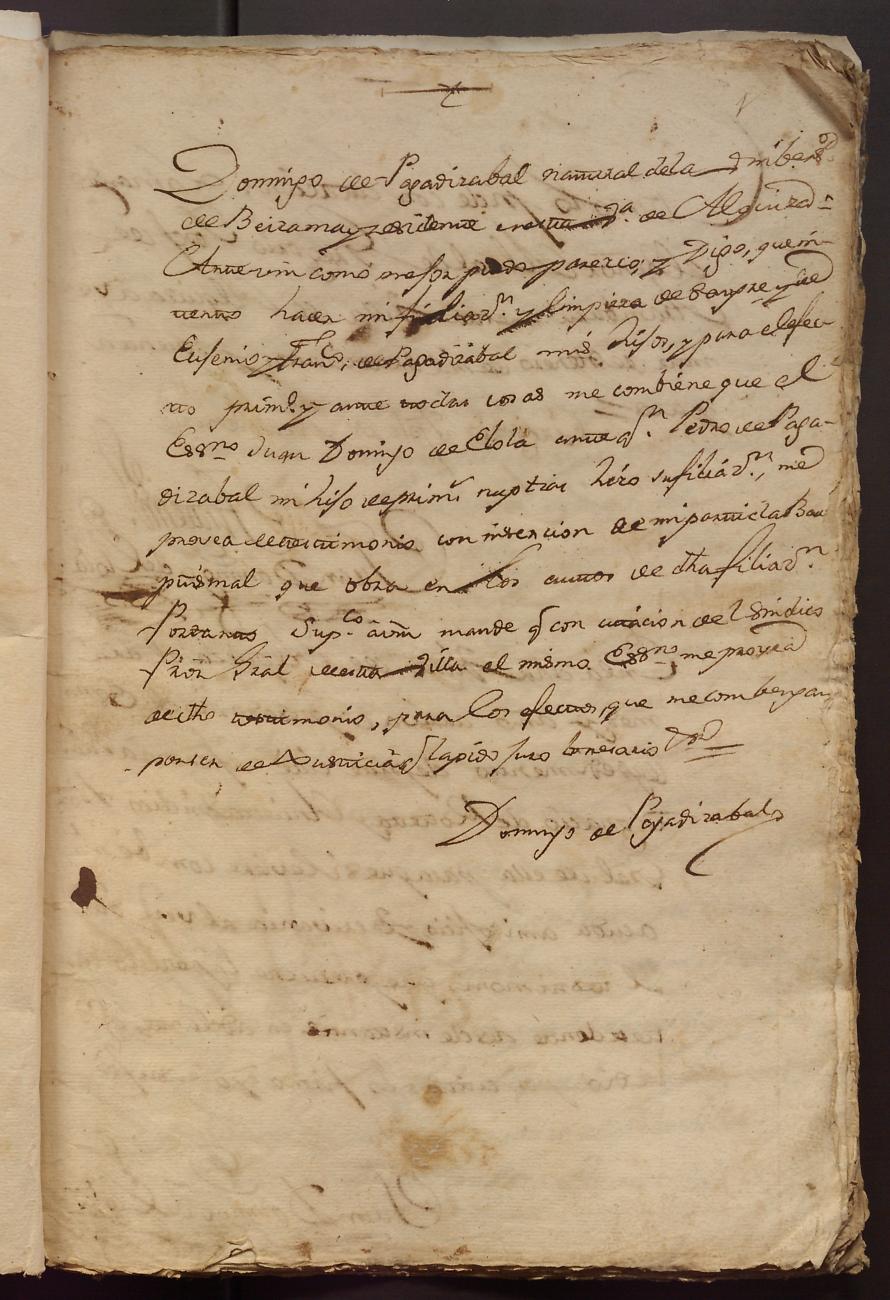 Domingo de Pagadizabal natural dela Vnibersd
de Beizama y residente enesta Va. de Alquiza
Ante vm como mejor puedo parezco, y Digo, que in-
tento hacer mi filiazn. y limpieza de sangre y de
Eusenio y Franco. de Pagadizabal mis hijos, y para el efec
to primo. y ante todas cosas me combiene que el
Essno Juan Domingo de Elola ante qn. Pedro de Paga-
dizabal mi hijo de primas nuptias hizo su filiazn., me
provea de testimonio con insercion de mi partida Bau
ptismal que obra en los autos de dha filiazn.
Portanto Suppco. avm mande q con citacion del Sindico
Pror Gral de esta Villa el mismo Essno me provea
de dho testimonio, para los efectos, que me combengan
por ser de Justicia q la pido juro lo necesario
Domingo de Pagadizabal